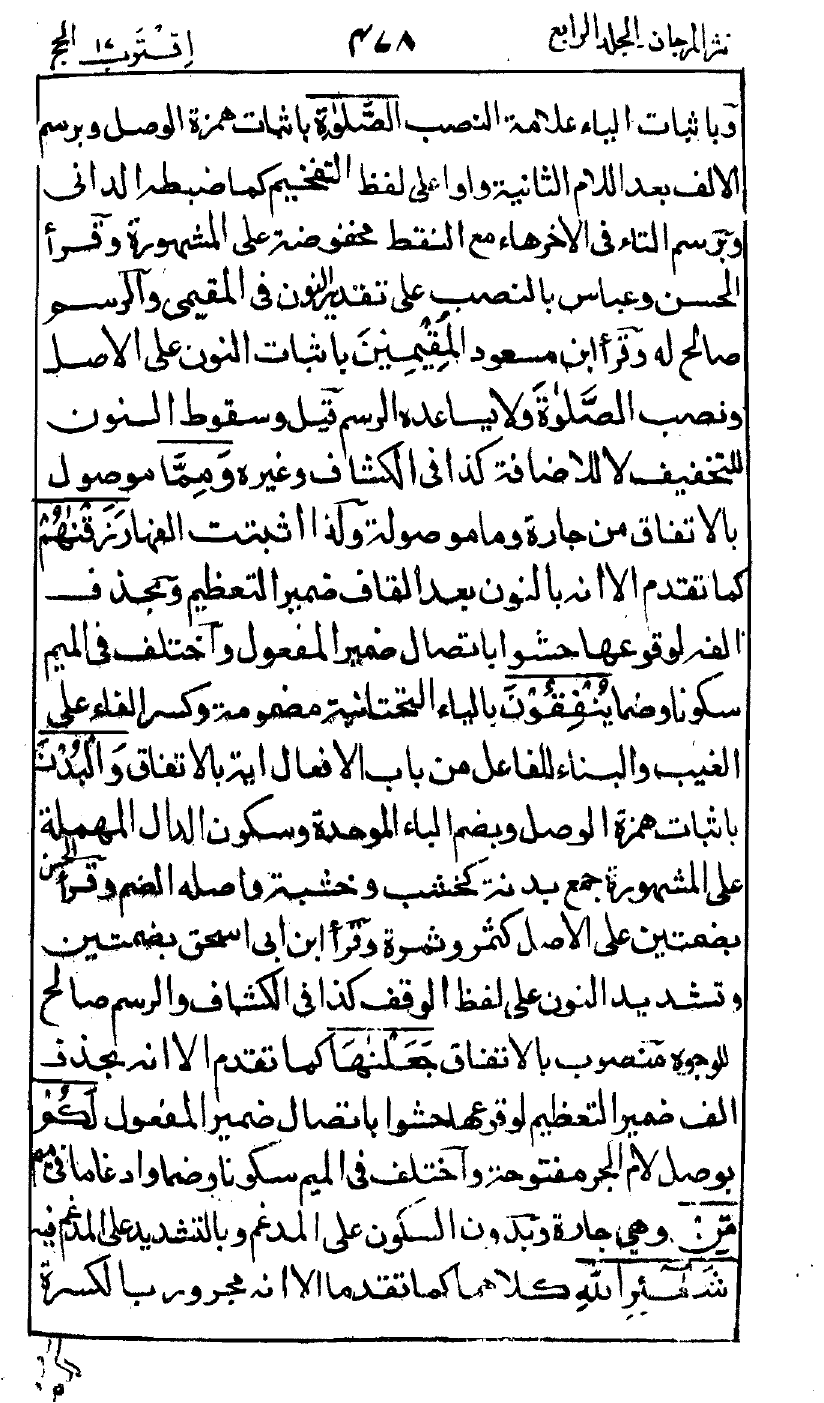 نثر المرجان۔ المجلد الرابع ٤٧٨ اِقْتَرَبَ ١٧ الحج
وباثبات الياء علامة النصب الصَّلٰوةِ باثبات همزة الوصل وبرسم
الالف بعد اللام الثانية واوا على لفظ التفخيم كما ضبطه الدانى
وبرسم التاء فى الاخر هاء مع النقط مخفوضة على المشهورة وقرأ
الحسن وعباس بالنصب على تقدير النون فى المقيمى والرسم
صالح له وقرأ ابن مسعود المُقِيْمِيْنَ باثبات النون على الاصل
ونصب الصَّلٰوةَ ولا يساعده الرسم قيل وسقوط النون
للتخفيف لا للاضافة كذا فى الكشاف وغيره وَمِمَّا موصول
بالاتفاق من جارة وما موصولة ولذا اثبتت الفها رَزَقْنٰهُمْ
كما تقدم الا انه بالنون بعد القاف ضمير التعظيم وبحذف
الفه لوقوعها حشوا باتصال ضمير المفعول واختلف فى الميم
سكونا وضما يُنْفِقُوْنَ بالياء التحتانية مضمومة وكسر الفاء على
الغيب والبناء للفاعل من باب الافعال اية بالاتفاق وَالْبُدْنَ
باثبات همزة الوصل وبضم الباء الموحدة وسكون الدال المهملة
على المشهورة جمع بدنة كخشب وخشبة واصله الضم وقرأ الحسن
بضمتين على الاصل كثمر وثمرة وقرأ ابن ابى اسحق بضمتين
وتشديد النون على لفظ الوقف كذا فى الكشاف والرسم صالح
للوجوه منصوب بالاتفاق جَعَلْنٰهَا كما تقدم الا انه بحذف
الف ضمير التعظيم لوقوعها حشوا باتصال ضمير المفعول لَكُمْ
بوصل لام الجر مفتوحة واختلف فى الميم سكونا وضما وادغاما فى ميم
مِّنْ وهى جارة وبدون السكون على المدغم وبالتشديد على المدغم فيه
شَعَٰٓئِرِ اللّٰهِ كلاهما كما تقدما الا انه مجرور بالكسرة